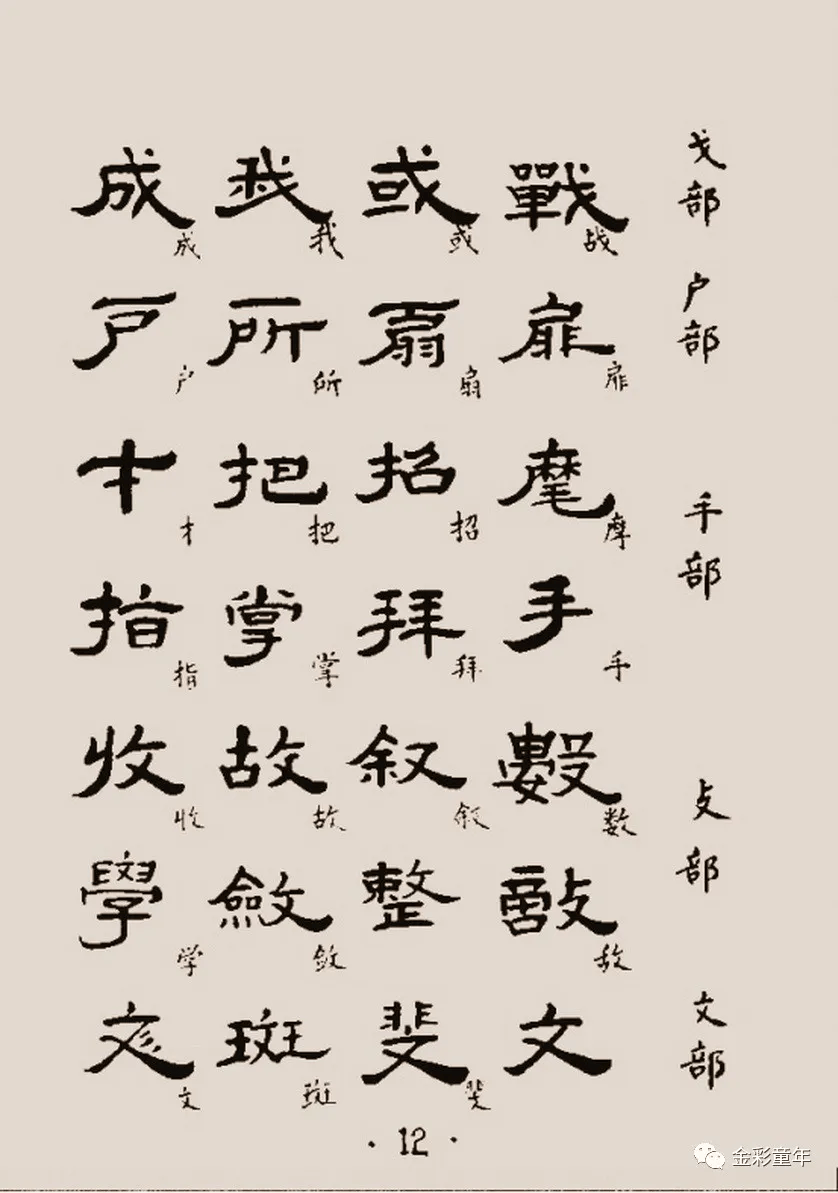 成 我 或 戰 戈部
成 我 或 战
戶 所 扇 扉 户部
户 所 扇 扉
才 把 招 摩 手部
才 把 招 摩
指 掌 拜 手
指 掌 拜 手
收 故 叙 數 攴部
收 故 叙 数
學 斂 整 敵
学 敛 敌
彣 斑 斐 文 文部
文 斑 斐
·12·
金彩童年